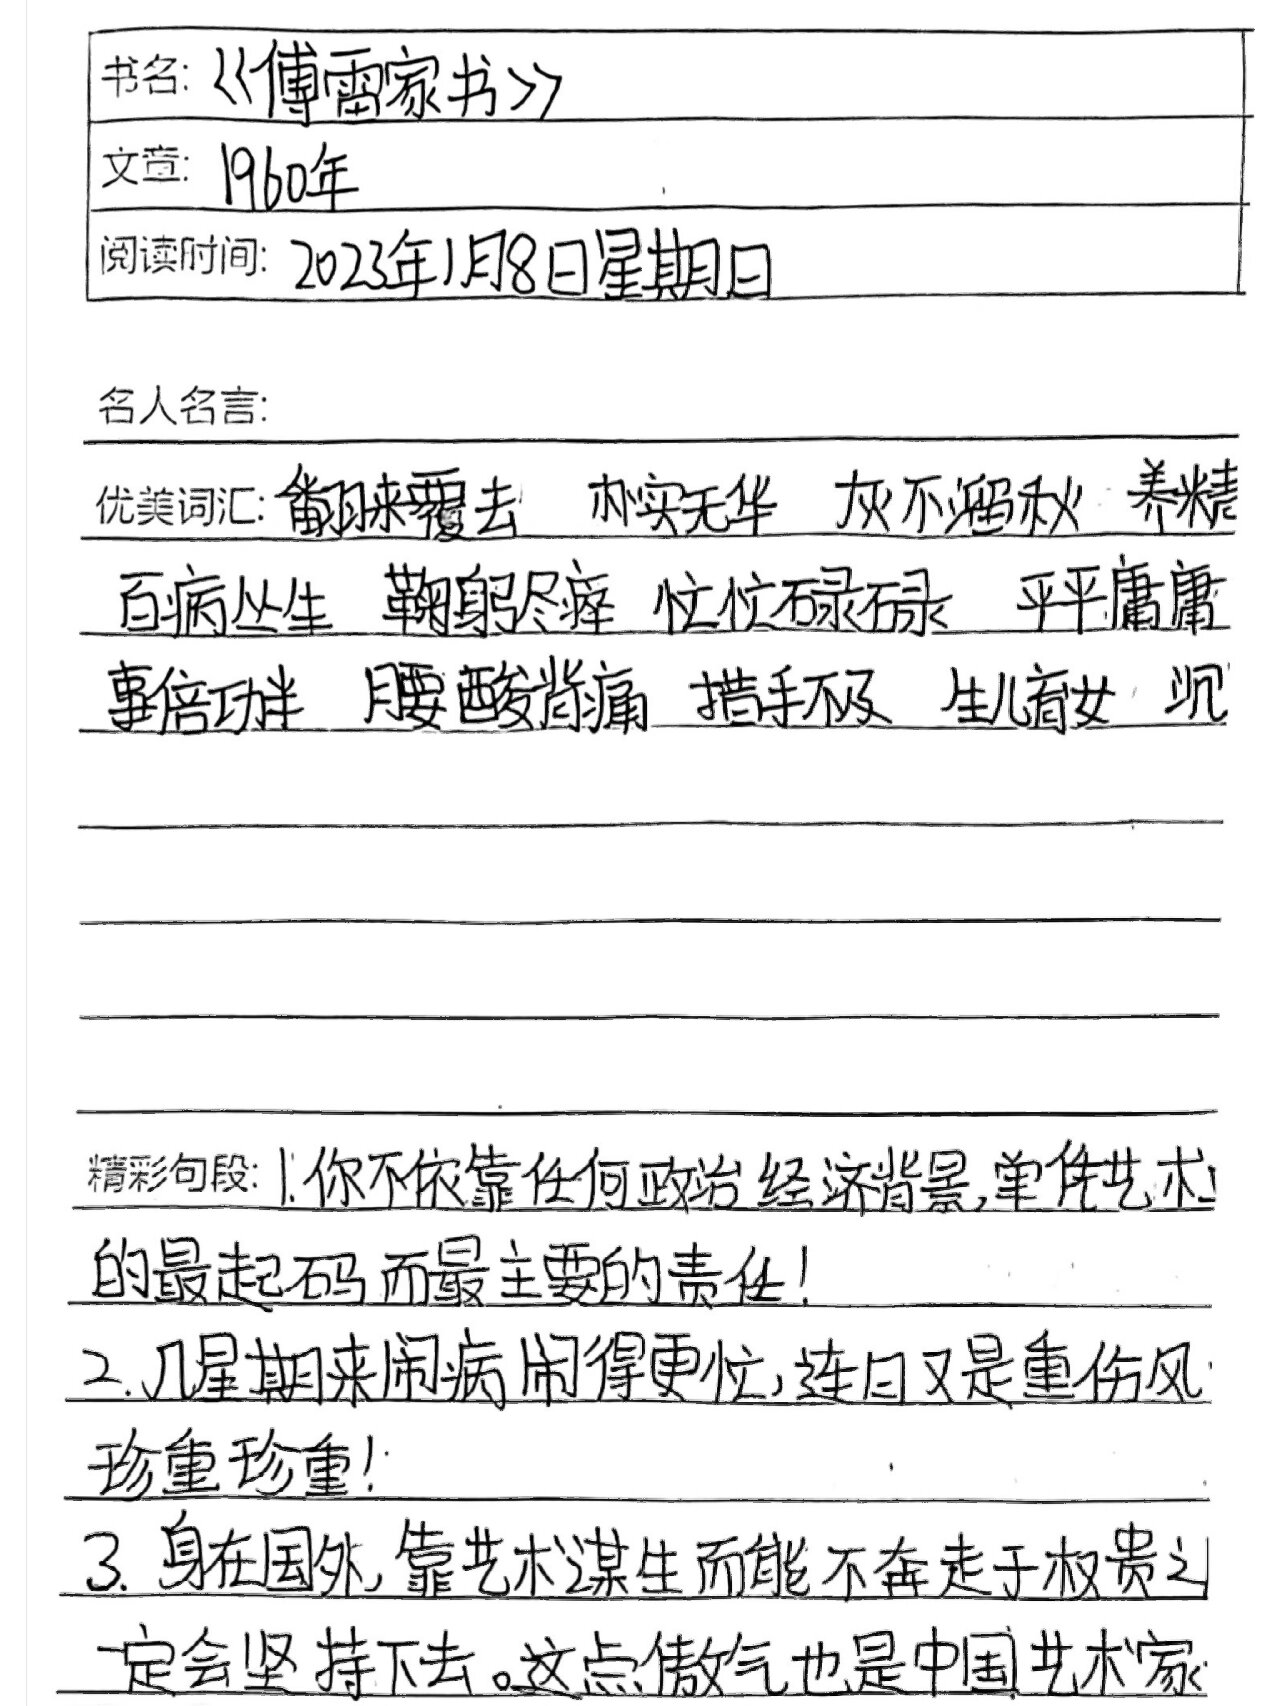 书名: 《傅雷家书》
文章: 1960年
阅读时间: 2023年1月8日星期日
名人名言:
优美词汇: 翻来覆去 朴实无华 灰不溜秋 养精
百病丛生 鞠躬尽瘁 忙忙碌碌 平平庸庸
事倍功半 腰酸背痛 措手不及 生儿育女 沉
精彩句段: 1.你不依靠任何政治经济背景,单凭艺术
的最起码而最主要的责任!
2.几星期来闹病闹得更忙,连日又是重伤风
珍重珍重!
3.身在国外,靠艺术谋生而能不奔走于权贵之
一定会坚持下去。这点傲气也是中国艺术家